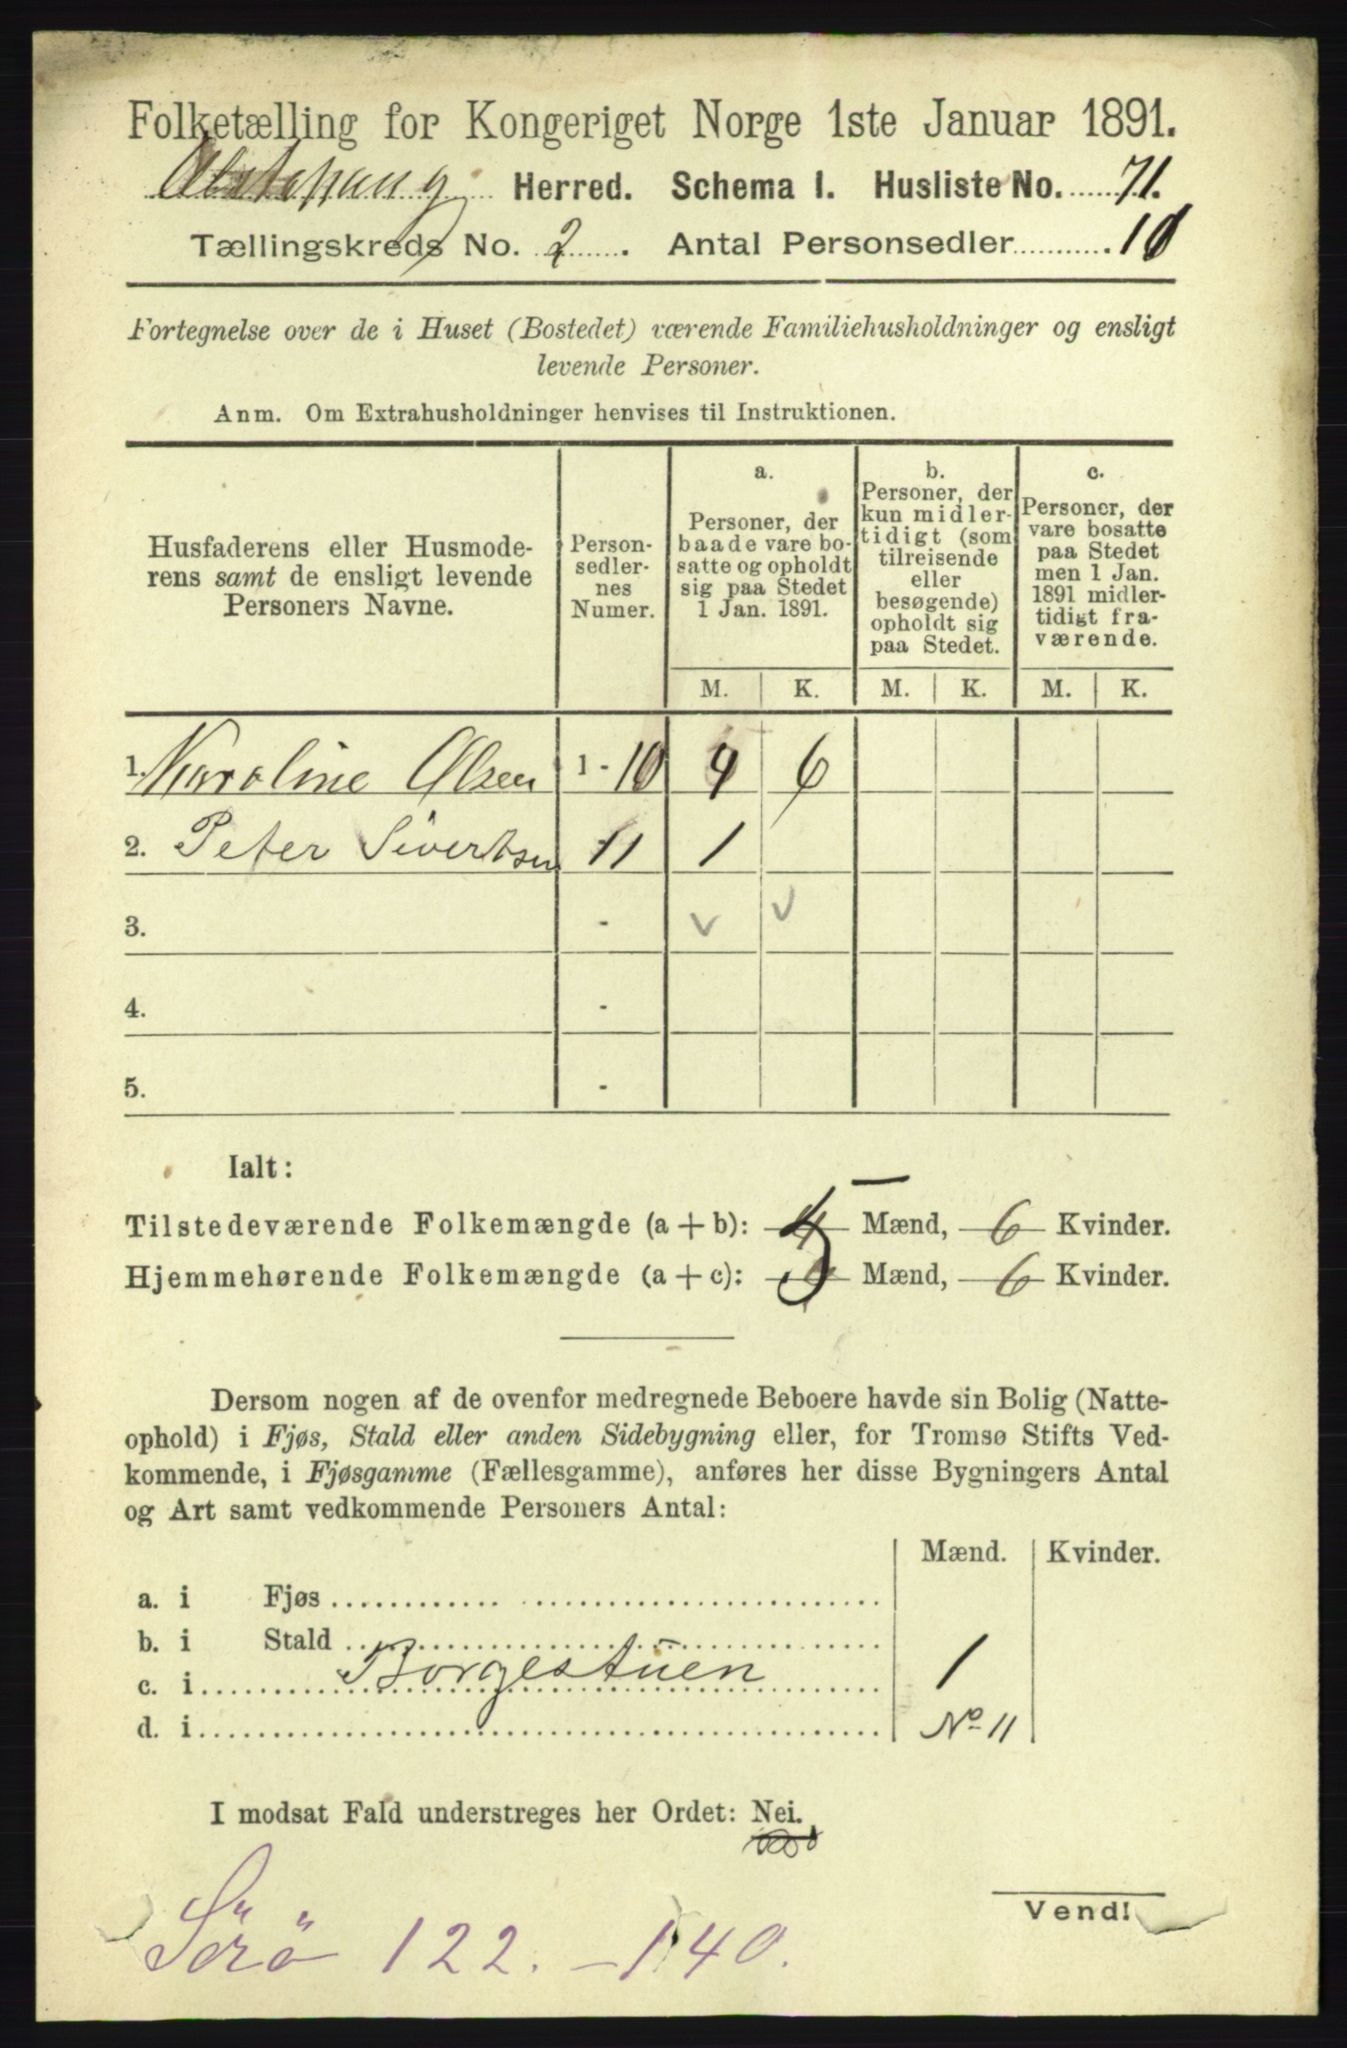 Folketælling for Kongeriget Norge 1ste Januar 1891.
Alstahaug Herred. Schema I. Husliste No. 71.
Tællingskreds No. 2. Antal Personsedler 10
Fortegnelse over de i Huset (Bostedet) værende Familiehusholdninger og ensligt
levende Personer.
Anm. Om Extrahusholdninger henvises til Instruktionen.
Husfaderens eller Husmode-
rens samt de ensligt levende
Personers Navne.
Person-
sedler-
nes
Numer.
a.
Personer, der
baade vare bo-
satte og opholdt
sig paa Stedet
1 Jan. 1891.
b.
Personer, der
kun midler-
tidigt (som
tilreisende
eller
besøgende)
opholdt sig
paa Stedet.
c.
Personer, der
vare bosatte
paa Stedet
men 1 Jan.
1891 midler-
tidigt fra-
værende.
M. K. M. K. M. K.
1. Karoline Olsen 1 - 10 4 6
2. Peter Sivertsen 11 1
3. - v v
4. -
5. -
Ialt:
Tilstedeværende Folkemængde (a + b): 5 Mænd, 6 Kvinder.
Hjemmehørende Folkemængde (a + c): 5 Mænd, 6 Kvinder.
Dersom nogen af de ovenfor medregnede Beboere havde sin Bolig (Natte-
ophold) i Fjøs, Stald eller anden Sidebygning eller, for Tromsø Stifts Ved-
kommende, i Fjøsgamme (Fællesgamme), anføres her disse Bygningers Antal
og Art samt vedkommende Personers Antal:
Mænd. Kvinder.
a. i Fjøs
b. i Stald
c. i Borgestuen 1
d. i No 11
I modsat Fald understreges her Ordet: Nei.
Vend!
Sörö 122. - 140.